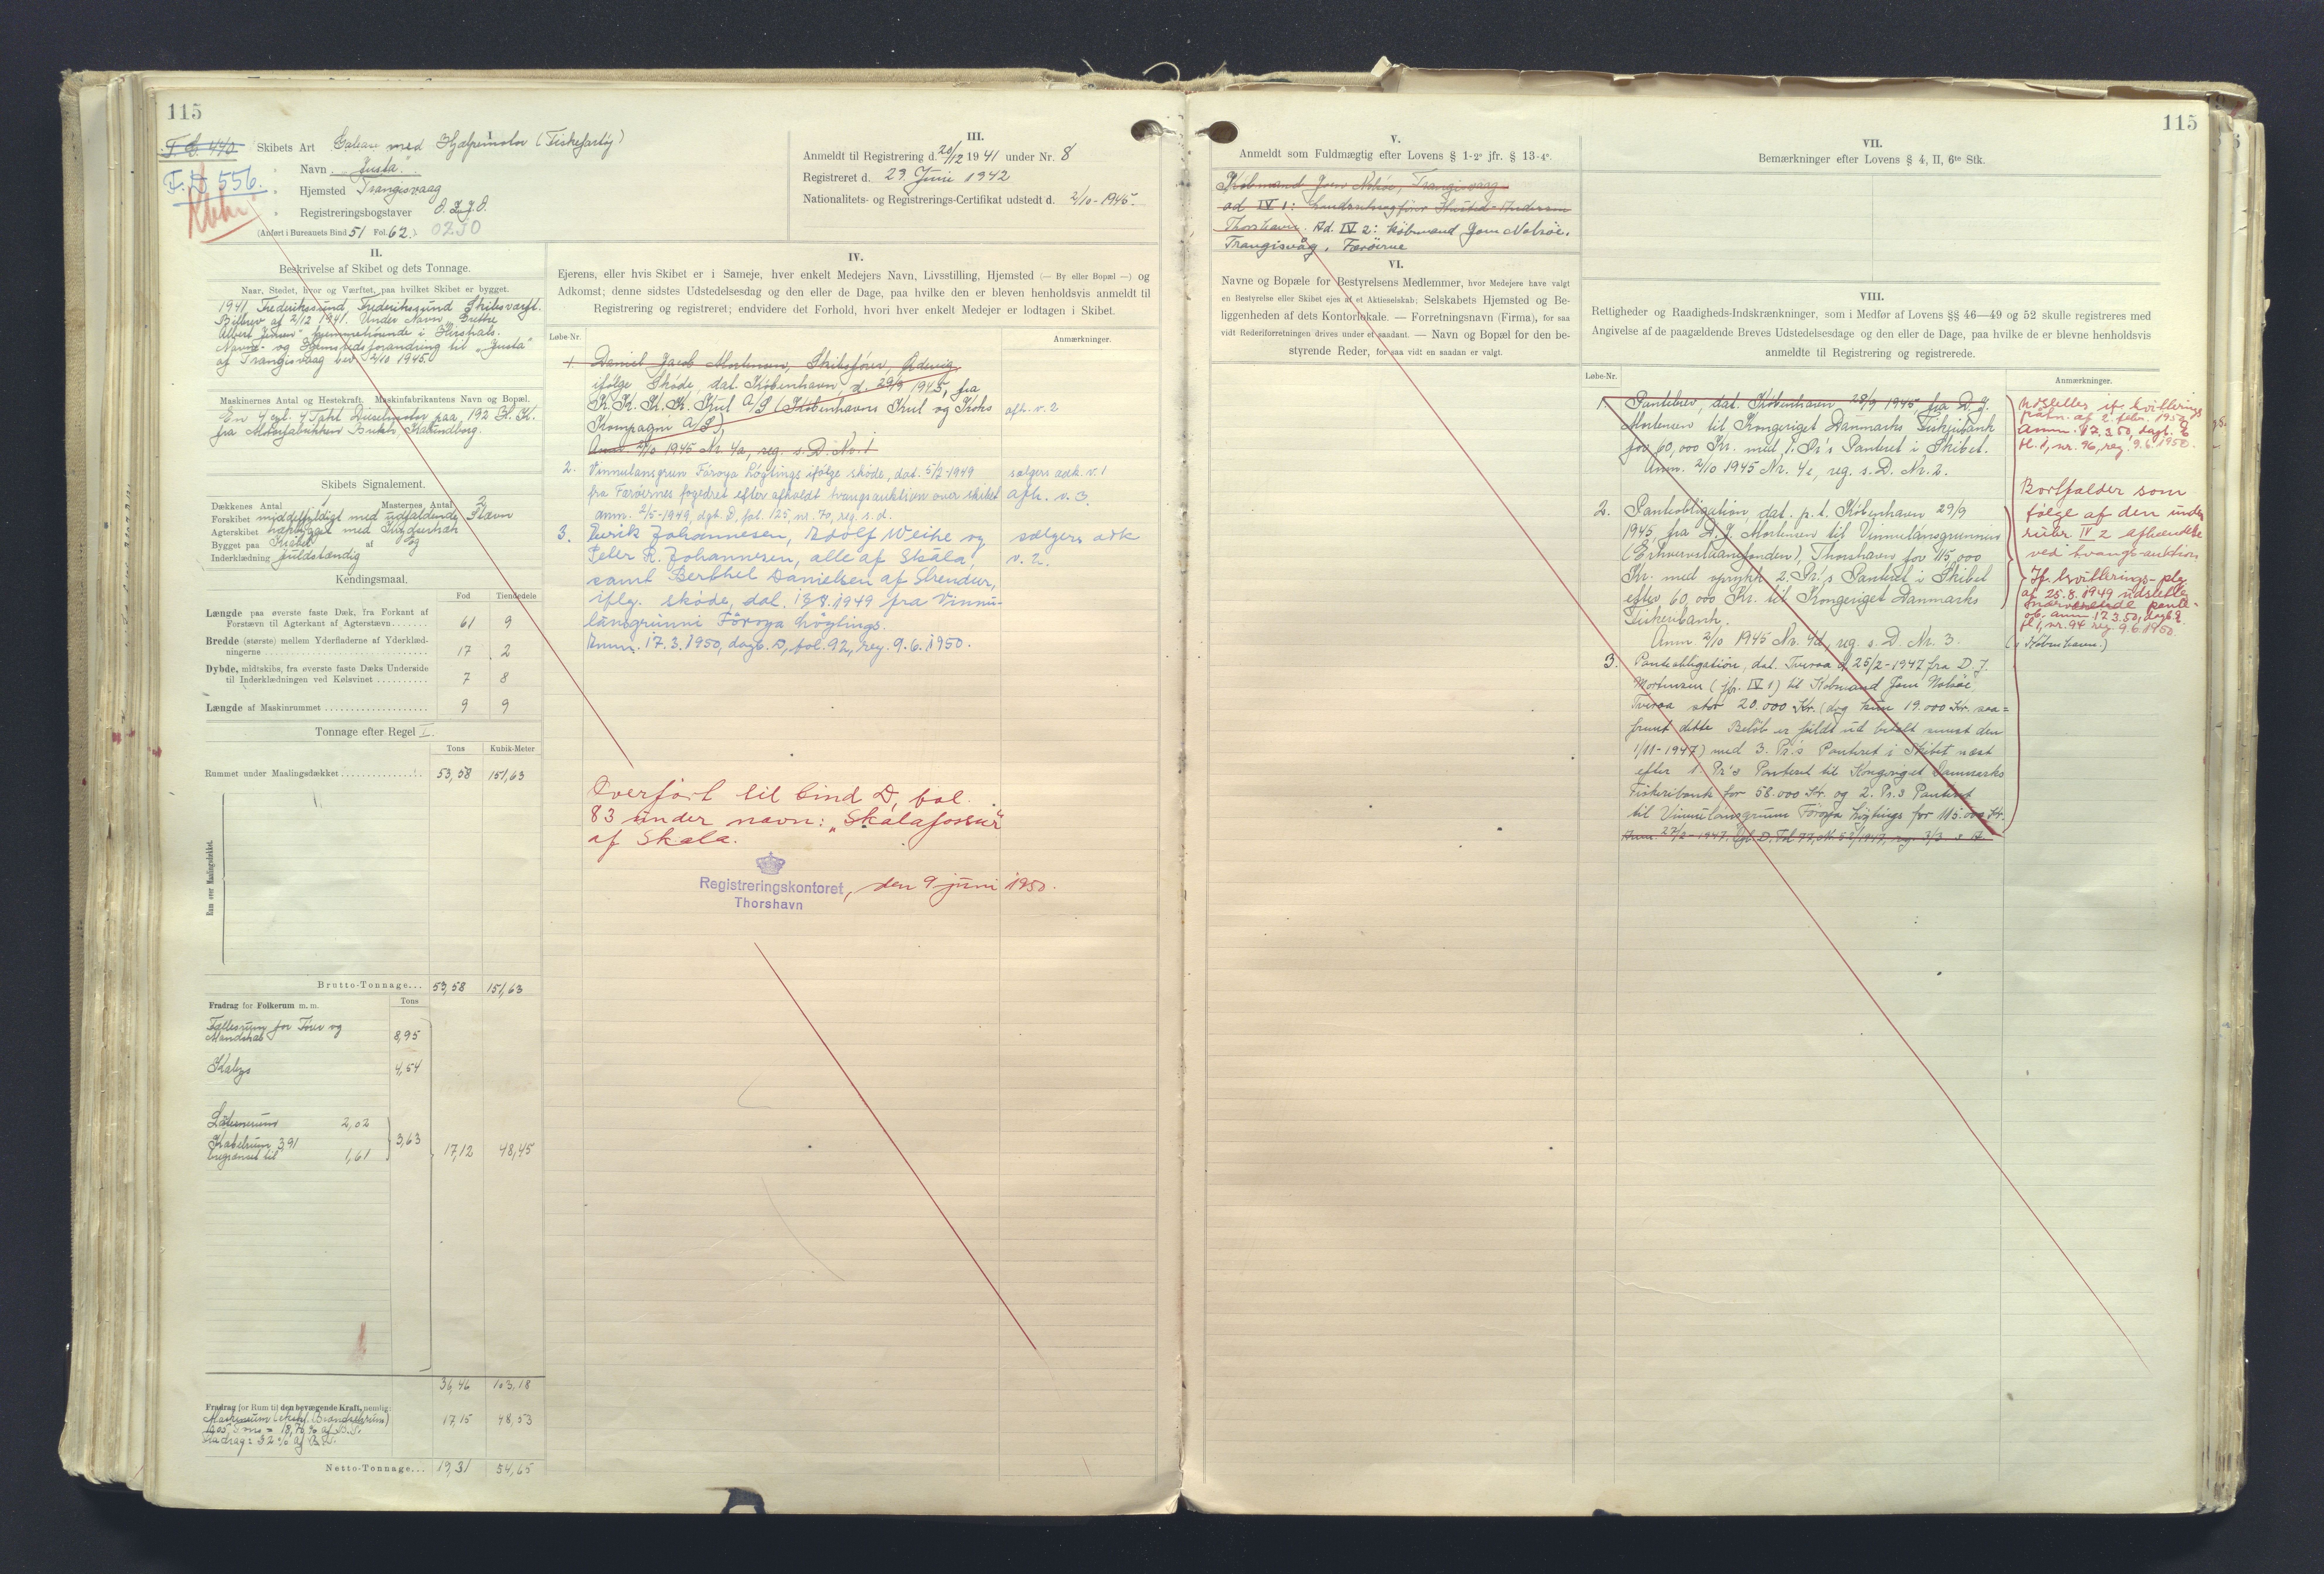 115
T. G. 440.
F. D 556.
I.
Skibets Art Galease med Hjælpemotor (Fiskefartøj)
Navn „Justa“.
Hjemsted Trangisvaag
Registreringsbogstaver
(Anført i Bureauets Bind 51 Fol. 62.) 0230
III.
Anmeldt til Registrering d. 20/12 1941 under Nr. 8
Registreret d. 23. Juni 1942
Nationalitets- og Registrerings-Certifikat udstedt d. 2/10-1945.
II.
Beskrivelse af Skibet og dets Tonnage.
Naar, Stedet, hvor og Værftet, paa hvilket Skibet er bygget.
1941, Frederikssund, Frederikssund Skibsværft.
Bilbrev af 2/12 1941. Under Navn „Grethe
Albert Jensen“ hjemmehørende i Hirshals.
Navne- og Hjemstedsforandring til „Justa“
af Trangisvaag bev. 2/10 1945.
Maskinernes Antal og Hestekraft. Maskinfabrikantens Navn og Bopæl.
En 4 cyl. 4 Takt Dieselmotor paa 192 H. K.
fra Motorfabrikken Bukh, Kalundborg.
Skibets Signalement.
Dækkenes Antal 1 Masternes Antal 2
Forskibet middelfyldigt med udfaldende Stævn
Agterskibet med Krydserhæk
Bygget paa Kravel af Eg
Inderklædning fuldstændig
Kendingsmaal.
Fod Tiendedele
Længde paa øverste faste Dæk, fra Forkant af
Forstævn til Agterkant af Agterstævn 61 9
Bredde (største) mellem Yderfladerne af Yderklæd-
ningerne 17 2
Dybde, midtskibs, fra øverste faste Dæks Underside
til Inderklædningen ved Kølsvinet 7 8
Længde af Maskinrummet 9 9
Tonnage efter Regel I.
Tons Kubik-Meter
Rummet under Maalingsdækket 53,58 151,63
Rum over Maalingsdækket.
Brutto-Tonnage... 53,58 151,63
Fradrag for Folkerum m. m. Tons
Fællesrum for Fører og
Mandskab 8,95
Kabys 4,54
Lanternerum 2,02
Kabelrum 3,91
begrænset til 1,61
3,63
17,12 48,45
36,46 103,18
Fradrag for Rum til den bevægende Kraft, nemlig:
Maskinrum (ekskl. Brændselsrum)
10,05 Tons = 18,76 % af B.T.
Fradrag: 32 % af B.T. 17,15 48,53
Netto-Tonnage... 19,31 54,65
IV.
Ejerens, eller hvis Skibet er i Sameje, hver enkelt Medejers Navn, Livsstilling, Hjemsted (— By eller Bopæl —) og
Adkomst; denne sidstes Udstedelsesdag og den eller de Dage, paa hvilke den er bleven henholdsvis anmeldt til
Registrering og registreret; endvidere det Forhold, hvori hver enkelt Medejer er lodtagen i Skibet.
Løbe-Nr. Anmærkninger.
1. Daniel Jacob Mortensen, Skibsfører,
ifølge Skøde, dat. København, d. 29/9 1945, fra
K. K. K. K. Kul A/S (Københavns Kul og Koks
Kompagni A/S) afh. v. 2
Anm. 2/10 1945 Nr. 4a, reg. s. D. Nr. 1
2. Vinnulansgrunn Føroya Løgtings ifølge skøde, dat. 5/2-1949
fra Færøernes fogedret efter afholdt tvangsauktion over skibet
anm. 2/5-1949, dgb. D, fol. 125, nr. 70, reg. s. d.
sælgers adk. v. 1
afh. v. 3
3. Eurik Johannesen, Adolf Weihe og
Peter R. Johannesen, alle af Skála,
samt Berthel Danielsen af Strendur,
iflg. skøde, dat. 13.8.1949 fra Vinnu-
lánsgrunni Føroya Løgtings.
Anm. 17.3.1950, dagb. D, fol. 92, reg. 9.6.1950.
sælgers adk
v. 2.
Overført til bind D, fol.
83 under navn: „Skálafossur“
af Skala.
Registreringskontoret, den 9 juni 1950.
Thorshavn
115
V.
Anmeldt som Fuldmægtig efter Lovens § 1-2° jfr. § 13-4°.
Købmand Joen Nolsøe, Trangisvaag
ad IV 1: Landssagfører Husted-Andersen
Thorshavn. Ad. IV 2: købmand Joen Nolsøe,
Trangisvåg, Færøerne
VI.
Navne og Bopæle for Bestyrelsens Medlemmer, hvor Medejere have valgt
en Bestyrelse eller Skibet ejes af et Aktieselskab; Selskabets Hjemsted og Be-
liggenheden af dets Kontorlokale. — Forretningsnavn (Firma), for saa
vidt Rederiforretningen drives under et saadant. — Navn og Bopæl for den be-
styrende Reder, for saa vidt en saadan er valgt.
VII.
Bemærkninger efter Lovens § 4, II, 6te Stk.
VIII.
Rettigheder og Raadigheds-Indskrænkninger, som i Medfør af Lovens §§ 46—49 og 52 skulle registreres med
Angivelse af de paagældende Breves Udstedelsesdage og den eller de Dage, paa hvilke de er blevne henholdsvis
anmeldte til Registrering og registrerede.
Løbe-Nr. Anmærkninger.
1. Pantebrev, dat. København 28/9 1945, fra D. J.
Mortensen til Kongeriget Danmarks Fiskeribank
for 60,000 Kr. med 1. Pr.'s Panteret i Skibet.
Anm. 2/10 1945 Nr. 4c, reg. s. D. Nr. 2.
Udslettes if. kvitterings
påtn. af 2. febr. 1950
Anm. 17.3.50, dagb. D
fl. 1, nr. 96, reg. 9.6.1950.
2. Panteobligation, dat. p. t. København 29/9
1945, fra D. J. Mortensen til Vinnulánsgrunnin
(Erhvervslaanefonden), Thorshavn for 115,000
Kr. med oprykk. 2. Pr.'s Panteret i Skibet
efter 60,000 Kr. til Kongeriget Danmarks
Fiskeribank.
Anm. 2/10 1945 Nr. 4d, reg. s. D Nr. 3.
Bortfalder som
følge af den under
rubr IV 2 afhændelse
ved tvangsauktion
If. kvitterings-ptg.
af 25.8.1949 udslettes
nærværende pante-
ob. anm 17.3.50, dagb. D
fl 1, nr. 94 reg. 9.6.1950.
(i København.)
3. Panteobligation, dat. Tveraa d. 25/2-1947 fra D. J.
Mortensen (jfr. IV 1) til Købmand Joen Nolsøe
Tveraa stor 20.000 Kr. (dog kun 19.000 Kr. saa=
fremt dette Beløb er fuldt ud betalt senest den
1/11-1947) med 3. Pr.'s Panteret i Skibet næst
efter 1 Pr's Panteret til Kongeriget Danmarks
Fiskeribank for 58.000 Kr. og 2. Pr.s Panteret
til Vinnulánsgrunn Føroya Løgtings for 115.000 Kr.
Anm. 27/2-1947, Dgb. D. Fol 77, Nr. 52/1947, reg. 3/3 s. A.